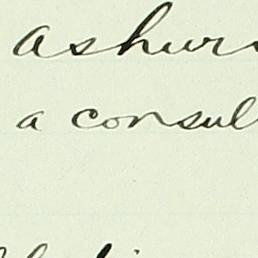 Ashur
a consul